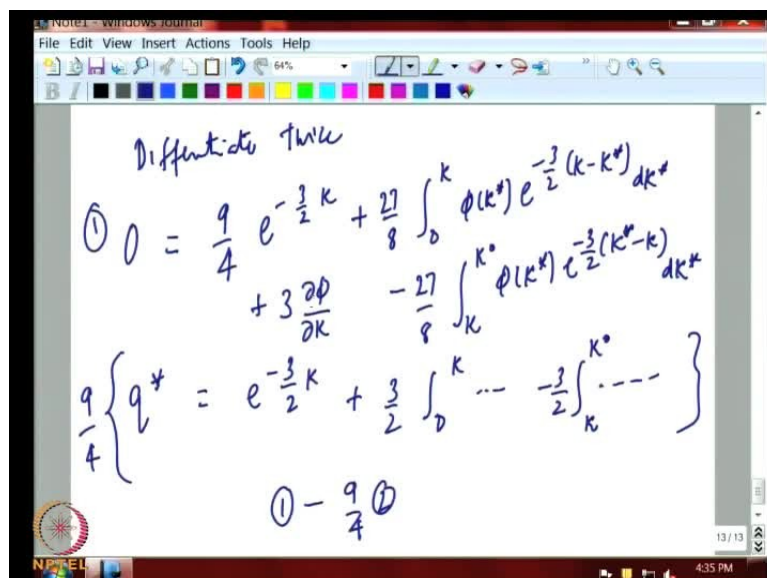 Note1 - Windows Journal
File Edit View Insert Actions Tools Help
64%
B I
Diffentiate twice
① 0 = 9/4 e^{-3/2 K} + 27/8 ∫_0^K φ(K*) e^{-3/2 (K-K*)} dK*
+ 3 ∂φ/∂K - 27/8 ∫_K^{K°} φ(K*) e^{-3/2 (K*-K)} dK*
9/4 { q* = e^{-3/2 K} + 3/2 ∫_0^K ... -3/2 ∫_K^{K°} .... }
① - 9/4 ②
13 / 13
NPTEL
4:35 PM